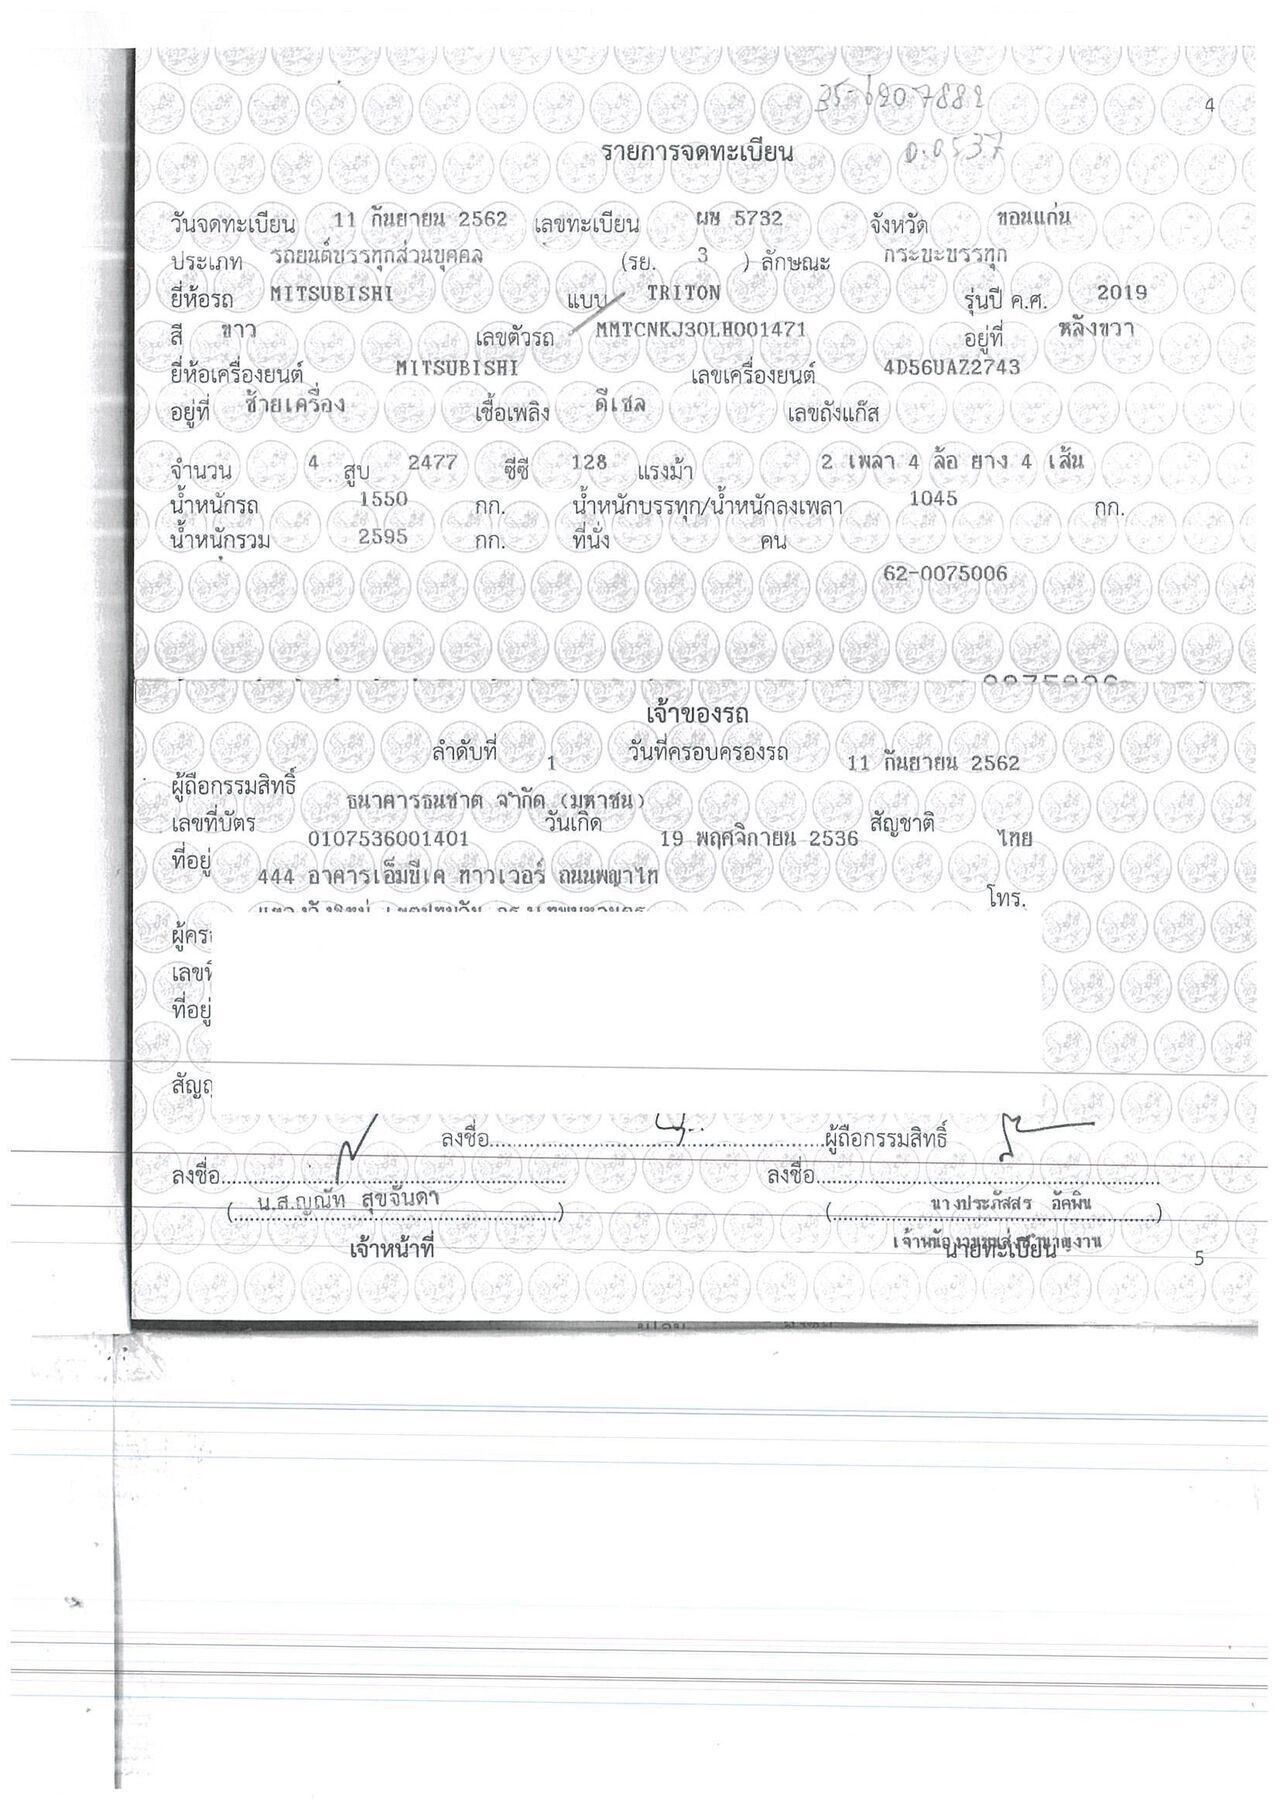 35-6207882
4
รายการจดทะเบียน
0.0537
วันจดทะเบียน 11 กันยายน 2562 เลขทะเบียน ผษ 5732 จังหวัด ขอนแก่น
ประเภท รถยนต์บรรทุกส่วนบุคคล (รย. 3 ) ลักษณะ กระบะบรรทุก
ยี่ห้อรถ MITSUBISHI แบบ TRITON รุ่นปี ค.ศ. 2019
สี ขาว เลขตัวรถ MMTCNKJ30LH001471 อยู่ที่ หลังขวา
ยี่ห้อเครื่องยนต์ MITSUBISHI เลขเครื่องยนต์ 4D56UAZ2743
อยู่ที่ ซ้ายเครื่อง เชื้อเพลิง ดีเซล เลขถังแก๊ส
จำนวน 4 สูบ 2477 ซีซี 128 แรงม้า 2 เพลา 4 ล้อ ยาง 4 เส้น
น้ำหนักรถ 1550 กก. น้ำหนักบรรทุก/น้ำหนักลงเพลา 1045 กก.
น้ำหนักรวม 2595 กก. ที่นั่ง คน
62-0075006
เจ้าของรถ
ลำดับที่ 1 วันที่ครอบครองรถ 11 กันยายน 2562
ผู้ถือกรรมสิทธิ์ ธนาคารธนชาต จำกัด (มหาชน)
เลขที่บัตร 0107536001401 วันเกิด 19 พฤศจิกายน 2536 สัญชาติ ไทย
ที่อยู่ 444 อาคารเอ็มบีเค ทาวเวอร์ ถนนพญาไท
โทร.
ที่อยู่
ลงชื่อ ผู้ถือกรรมสิทธิ์
ลงชื่อ ลงชื่อ
(น.ส.ญณัท สุขจันดา) (นางประภัสสร อัคพิน)
เจ้าหน้าที่ เจ้าพนักงานขนส่งชำนาญงาน
นายทะเบียน
5